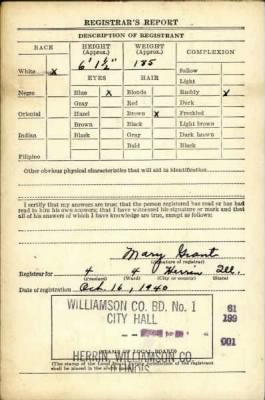 REGISTRAR'S REPORT
DESCRIPTION OF REGISTRANT
RACE HEIGHT (Approx.) WEIGHT (Approx.) COMPLEXION
6' 1½" 185
White X EYES HAIR Sallow
Light
Negro Blue X Blonde Ruddy X
Gray Red Dark
Oriental Hazel Brown X Freckled
Brown Black Light brown
Indian Black Gray Dark brown
Bald Black
Filipino
Other obvious physical characteristics that will aid in identification
I certify that my answers are true; that the person registered has read or has had
read to him his own answers; that I have witnessed his signature or mark and that
all of his answers of which I have knowledge are true, except as follows:
Mary Grant
(Signature of registrar)
Registrar for 4 4 Herrin Ill.
(Precinct) (Ward) (City or county) (State)
Date of registration Oct. 16, 1940
WILLIAMSON CO. BD. No. 1
CITY HALL
61
199
001
HERRIN, WILLIAMSON CO.
ILLINOIS
(STAMP OF LOCAL BOARD)